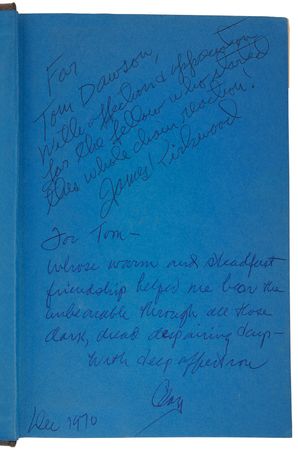 For
Tom Dawson,
With affection & appreciation
for the fellow who started
this whole chain reaction!
James Kirkwood
For Tom—
whose warm and steadfast
friendship helped me bear the
unbearable through all those
dark, dread despairing days—
With deep affection
Dec 1970